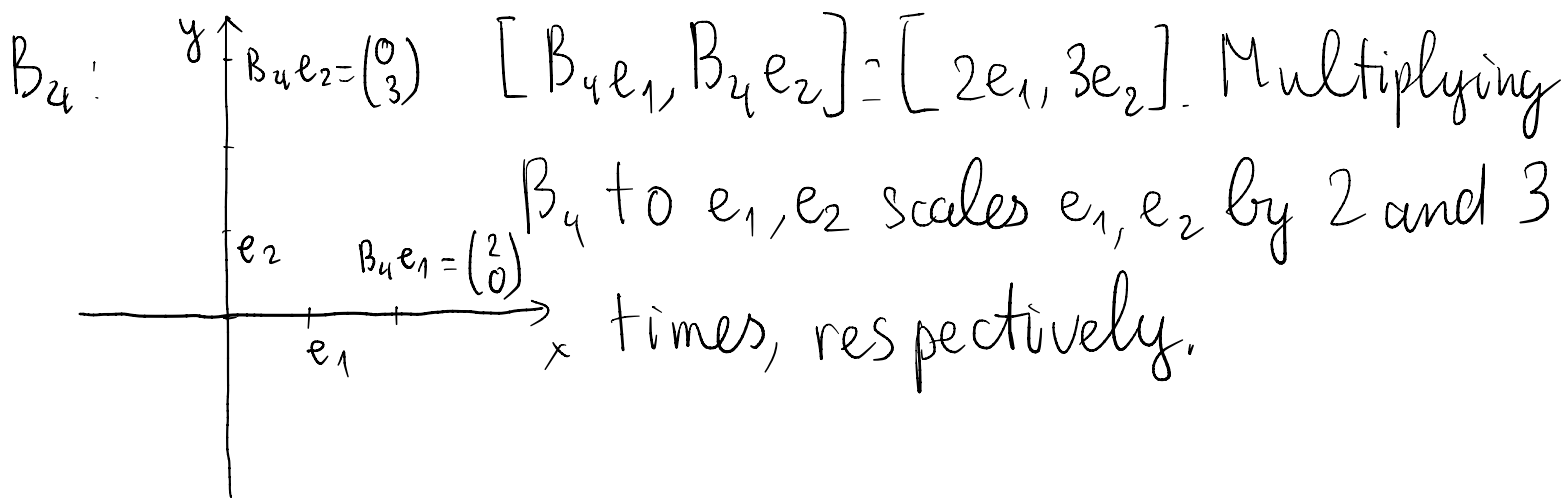 B₄:
y
B₄e₂ = (0 3)
[B₄e₁, B₄e₂] = [2e₁, 3e₂]. Multiplying
B₄ to e₁, e₂ scales e₁, e₂ by 2 and 3
e₂
B₄e₁ = (2 0)
times, respectively.
e₁
x